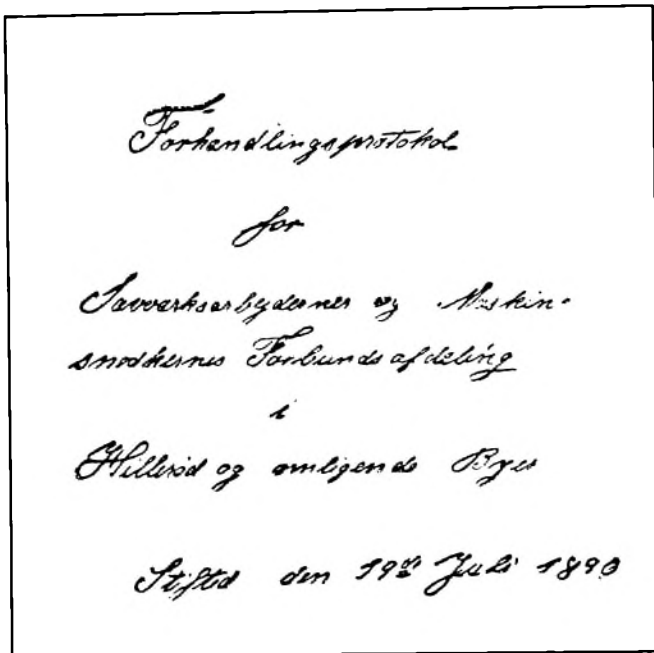 Forhandlingsprotokol
for
Savværksarbejdernes og Maskin-
snedkernes Forbunds afdeling
i
Hillerød og omligende Byer
Stifted den 19de Juli 1890